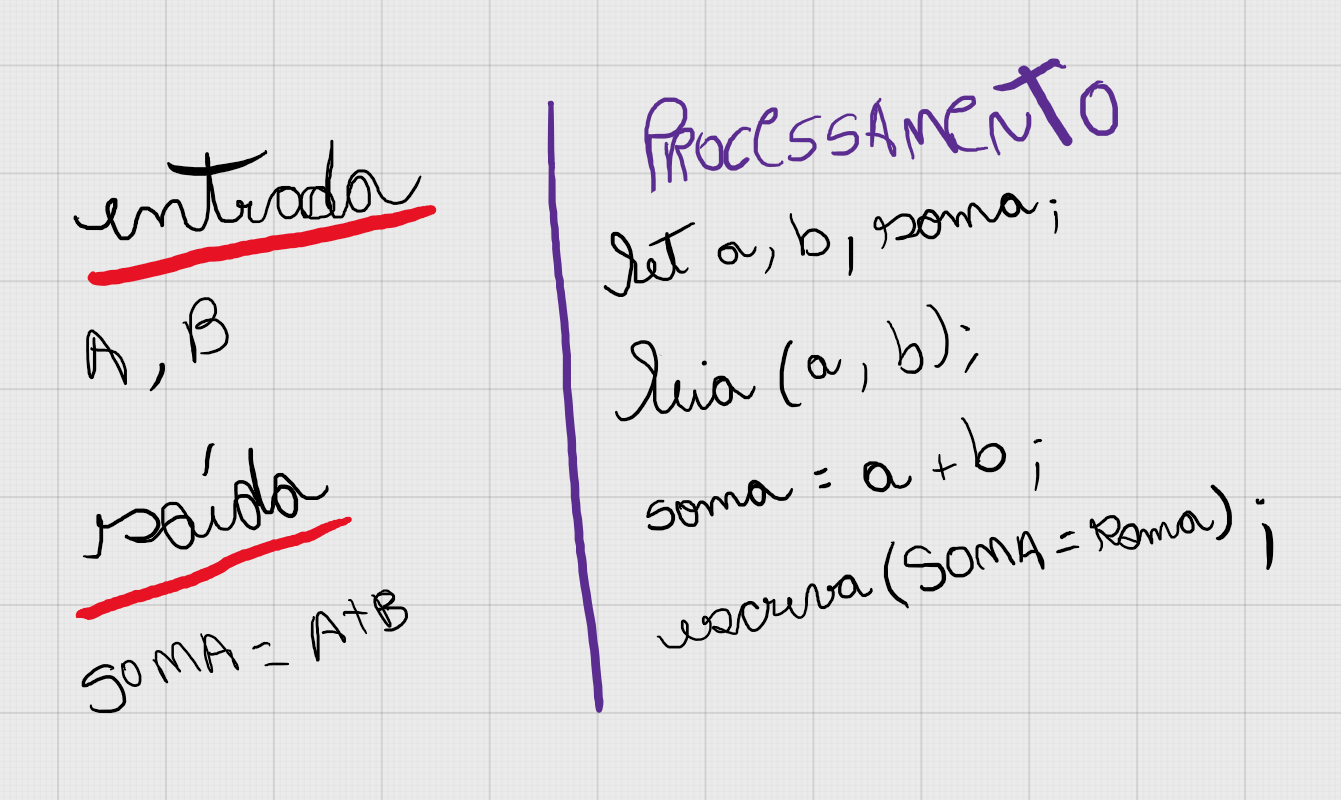 entrada
A, B
saída
SOMA = A+B
PROCESSAMENTO
let a, b, soma;
leia (a, b);
soma = a + b;
escreva (SOMA = soma);